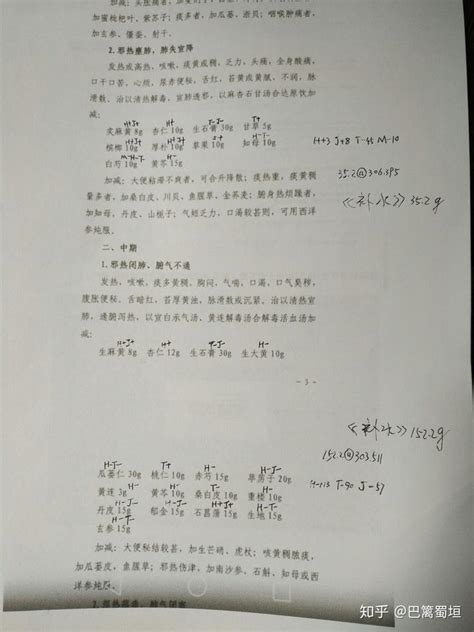 加减：头胀痛者，加
加蜜枇杷叶、紫苏子；痰多者，加瓜蒌、浙贝；咽喉肿痛者，
加玄参、僵蚕、射干。
2.邪热壅肺，肺失宣降
发热或高热，咳嗽，痰黄或稠，乏力，头痛，全身酸痛，
口干口苦，心烦，尿赤便秘，舌红，苔黄或黄腻，不润，脉
滑数。治以清热解毒，宣肺透邪，以麻杏石甘汤合达原饮加
减：
H+J+ T+ T-J- T+
炙麻黄 8g 杏仁 10g 生石膏 30g 甘草 5g
槟榔 10g 厚朴 10g 草果 10g 知母 10g
H+3 J+8 T-45 M-10
M-H-T- H-
白芍 10g 黄芩 15g
35.2@306.395
加减：大便粘滞不爽者，可合升降散；痰热重，痰黄稠
《补水》35.2g
量多者，加桑白皮、川贝、鱼腥草、金荞麦；腑身热烦躁者，
加知母、丹皮、山栀子；气短乏力，口渴较甚则，可用西洋
参炖服。
二、中期
1.邪热闭肺、腑气不通
发热，咳嗽，痰多黄稠，胸闷，气喘，口渴，口气臭秽，
腹胀便秘。舌暗红，苔厚黄浊，脉滑数或沉紧。治以清热宣
肺，通腑泻热，以宣白承气汤、黄连解毒汤合解毒活血汤加
减：
H+J+ T+ T-J- H-
生麻黄 8g 杏仁 12g 生石膏 30g 生大黄 10g
- 3 -
《补水》152.2g
152.2@303511
H-T- T+ H- H-J-
瓜蒌仁 30g 桃仁 10g 赤芍 15g 葶苈子 20g
H-113 T-90 J-57
黄连 3g 黄芩 10g 桑白皮 10g 重楼 10g
丹皮 15g 郁金 15g 石菖蒲 15g 生地 15g
H-T-
玄参 15g
加减：大便秘结较甚，加生芒硝，虎杖；咳黄稠脓痰，
加瓜蒌皮、鱼腥草；邪热伤津，加南沙参、石斛、知母或西
洋参炖服。
知乎 @巴篱蜀垣